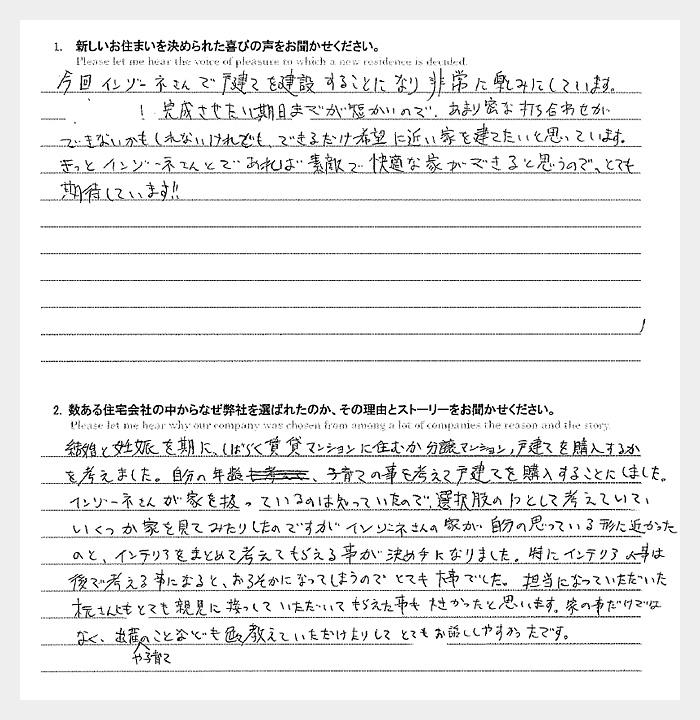 1. 新しいお住まいを決められた喜びの声をお聞かせください。
Please let me hear the voice of pleasure to which a new residence is decided.
今回インゾーネさんで戸建てを建設することになり非常に楽みにしています。
! 完成させたい期日までが短かいので、あまり密な打ち合わせが
できないかもしれないけれども、できるだけ希望に近い家を建てたいと思っています。
きっとインゾーネさんとであれば素敵で快適な家ができると思うので、とても
期待しています!!
2. 数ある住宅会社の中からなぜ弊社を選ばれたのか、その理由とストーリーをお聞かせください。
Please let me hear why our company was chosen from among a lot of companies the reason and the story.
結婚と妊娠を期に、しばらく賃貸マンションに住むか分譲マンション,戸建てを購入するか
を考えました。自分の年齢、子育ての事を考えて戸建てを購入することにしました。
インゾーネさんが家を扱っているのは知っていたので、選択肢の1つとして考えていて
いくつか家を見てみたりしたのですがインゾーネさんの家が自分の思っている形に近かった
のと、インテリアをまとめて考えてもらえる事が決め手になりました。特にインテリアの事は
後で考える事になると、おろそかになってしまうのでとても大事でした。担当になっていただいた
さんにもとても親身に接っしていただいてもらえた事も大きかったと思います。家の事だけでは
なく、出産のことなども色々教えていただけたりしてとてもお話ししやすかったです。
や子育て